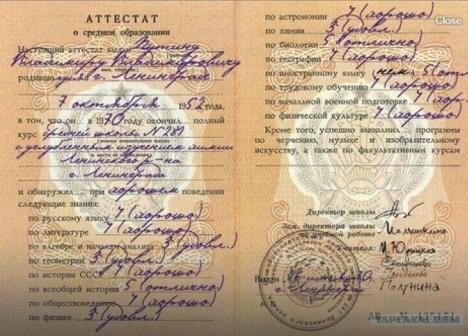 АТТЕСТАТ
о среднем образовании
Настоящий аттестат выдан Путину
Владимиру Владимировичу
г. Ленинграда
7 октября 1952 года,
в том, что он в 1970 окончил полный
курс средней школы № 281
с углубленным изучением химии
Ленинского р-на
г. Ленинграда
и обнаружил при хорошем поведении
следующие знания:
по русскому языку 4 (хорошо)
по литературе 4 (хорошо)
по алгебре и началам анализа 3 (удовл.)
по геометрии 3 (удовл.)
по истории СССР 4 (хорошо)
по всеобщей истории 5 (отлично)
по обществоведению 4 (хорошо)
по физике 3 (удовл.)
по астрономии 4 (хорошо)
Close
по химии 3 (удовл.)
по биологии 5 (отлично)
по географии 4 (хорошо)
по иностранному языку нем. 5 (отл.
по трудовому обучению (хорошо)
по начальной военной подготовке 4
по физической культуре 4 (хорошо)
Кроме того, успешно выполнил программы
по черчению, музыке и изобразительному
искусству, а также по факультативным курсам
Директор школы
Зам. директора школы
по учебной работе
Учителя:
Полунина
Выдан
г. Ленинград
АБ №